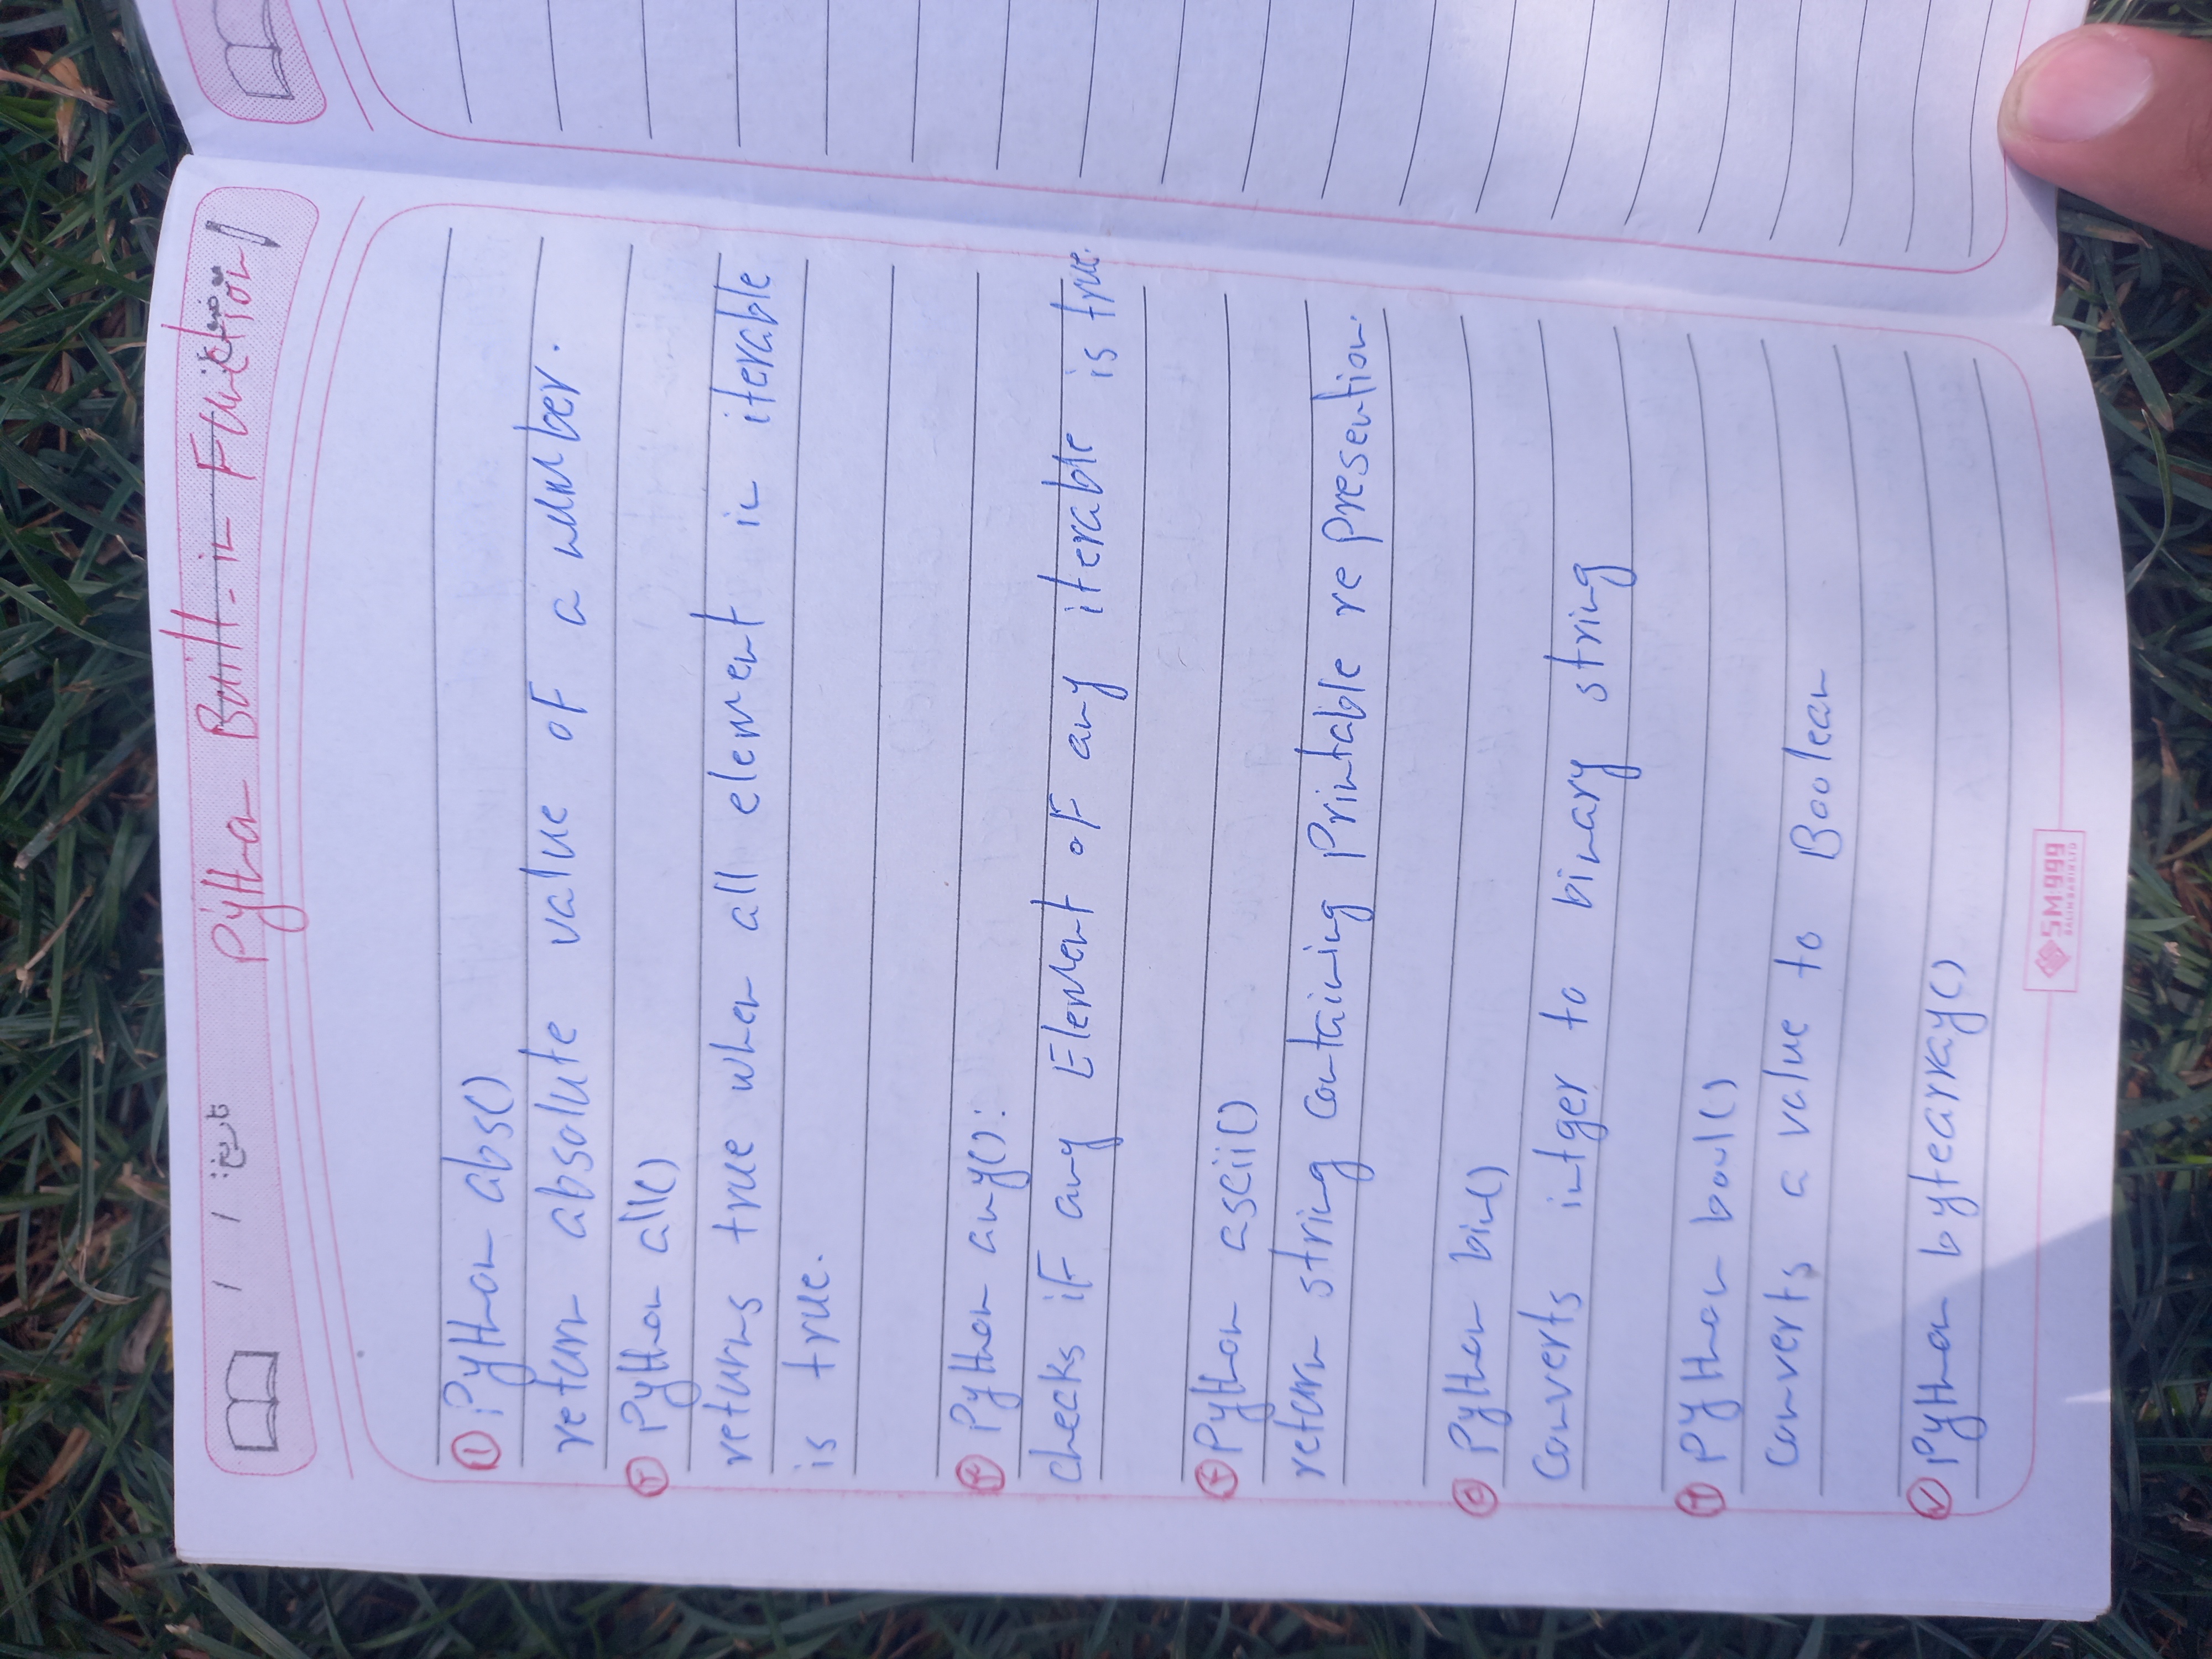 تاریخ: / /
موضوع:
Python Built-in Function
۱ Python abs()
return absolute value of a number.
۲ Python all()
returns true when all element in iterable
is true.
۳ Python any():
checks if any Element of any iterable is true.
۴ Python ascii()
return string containing Printable represention.
۵ Python bin()
converts intger to binary string
۶ Python bool()
converts a value to Boolean
۷ Python bytearray()
SM:999